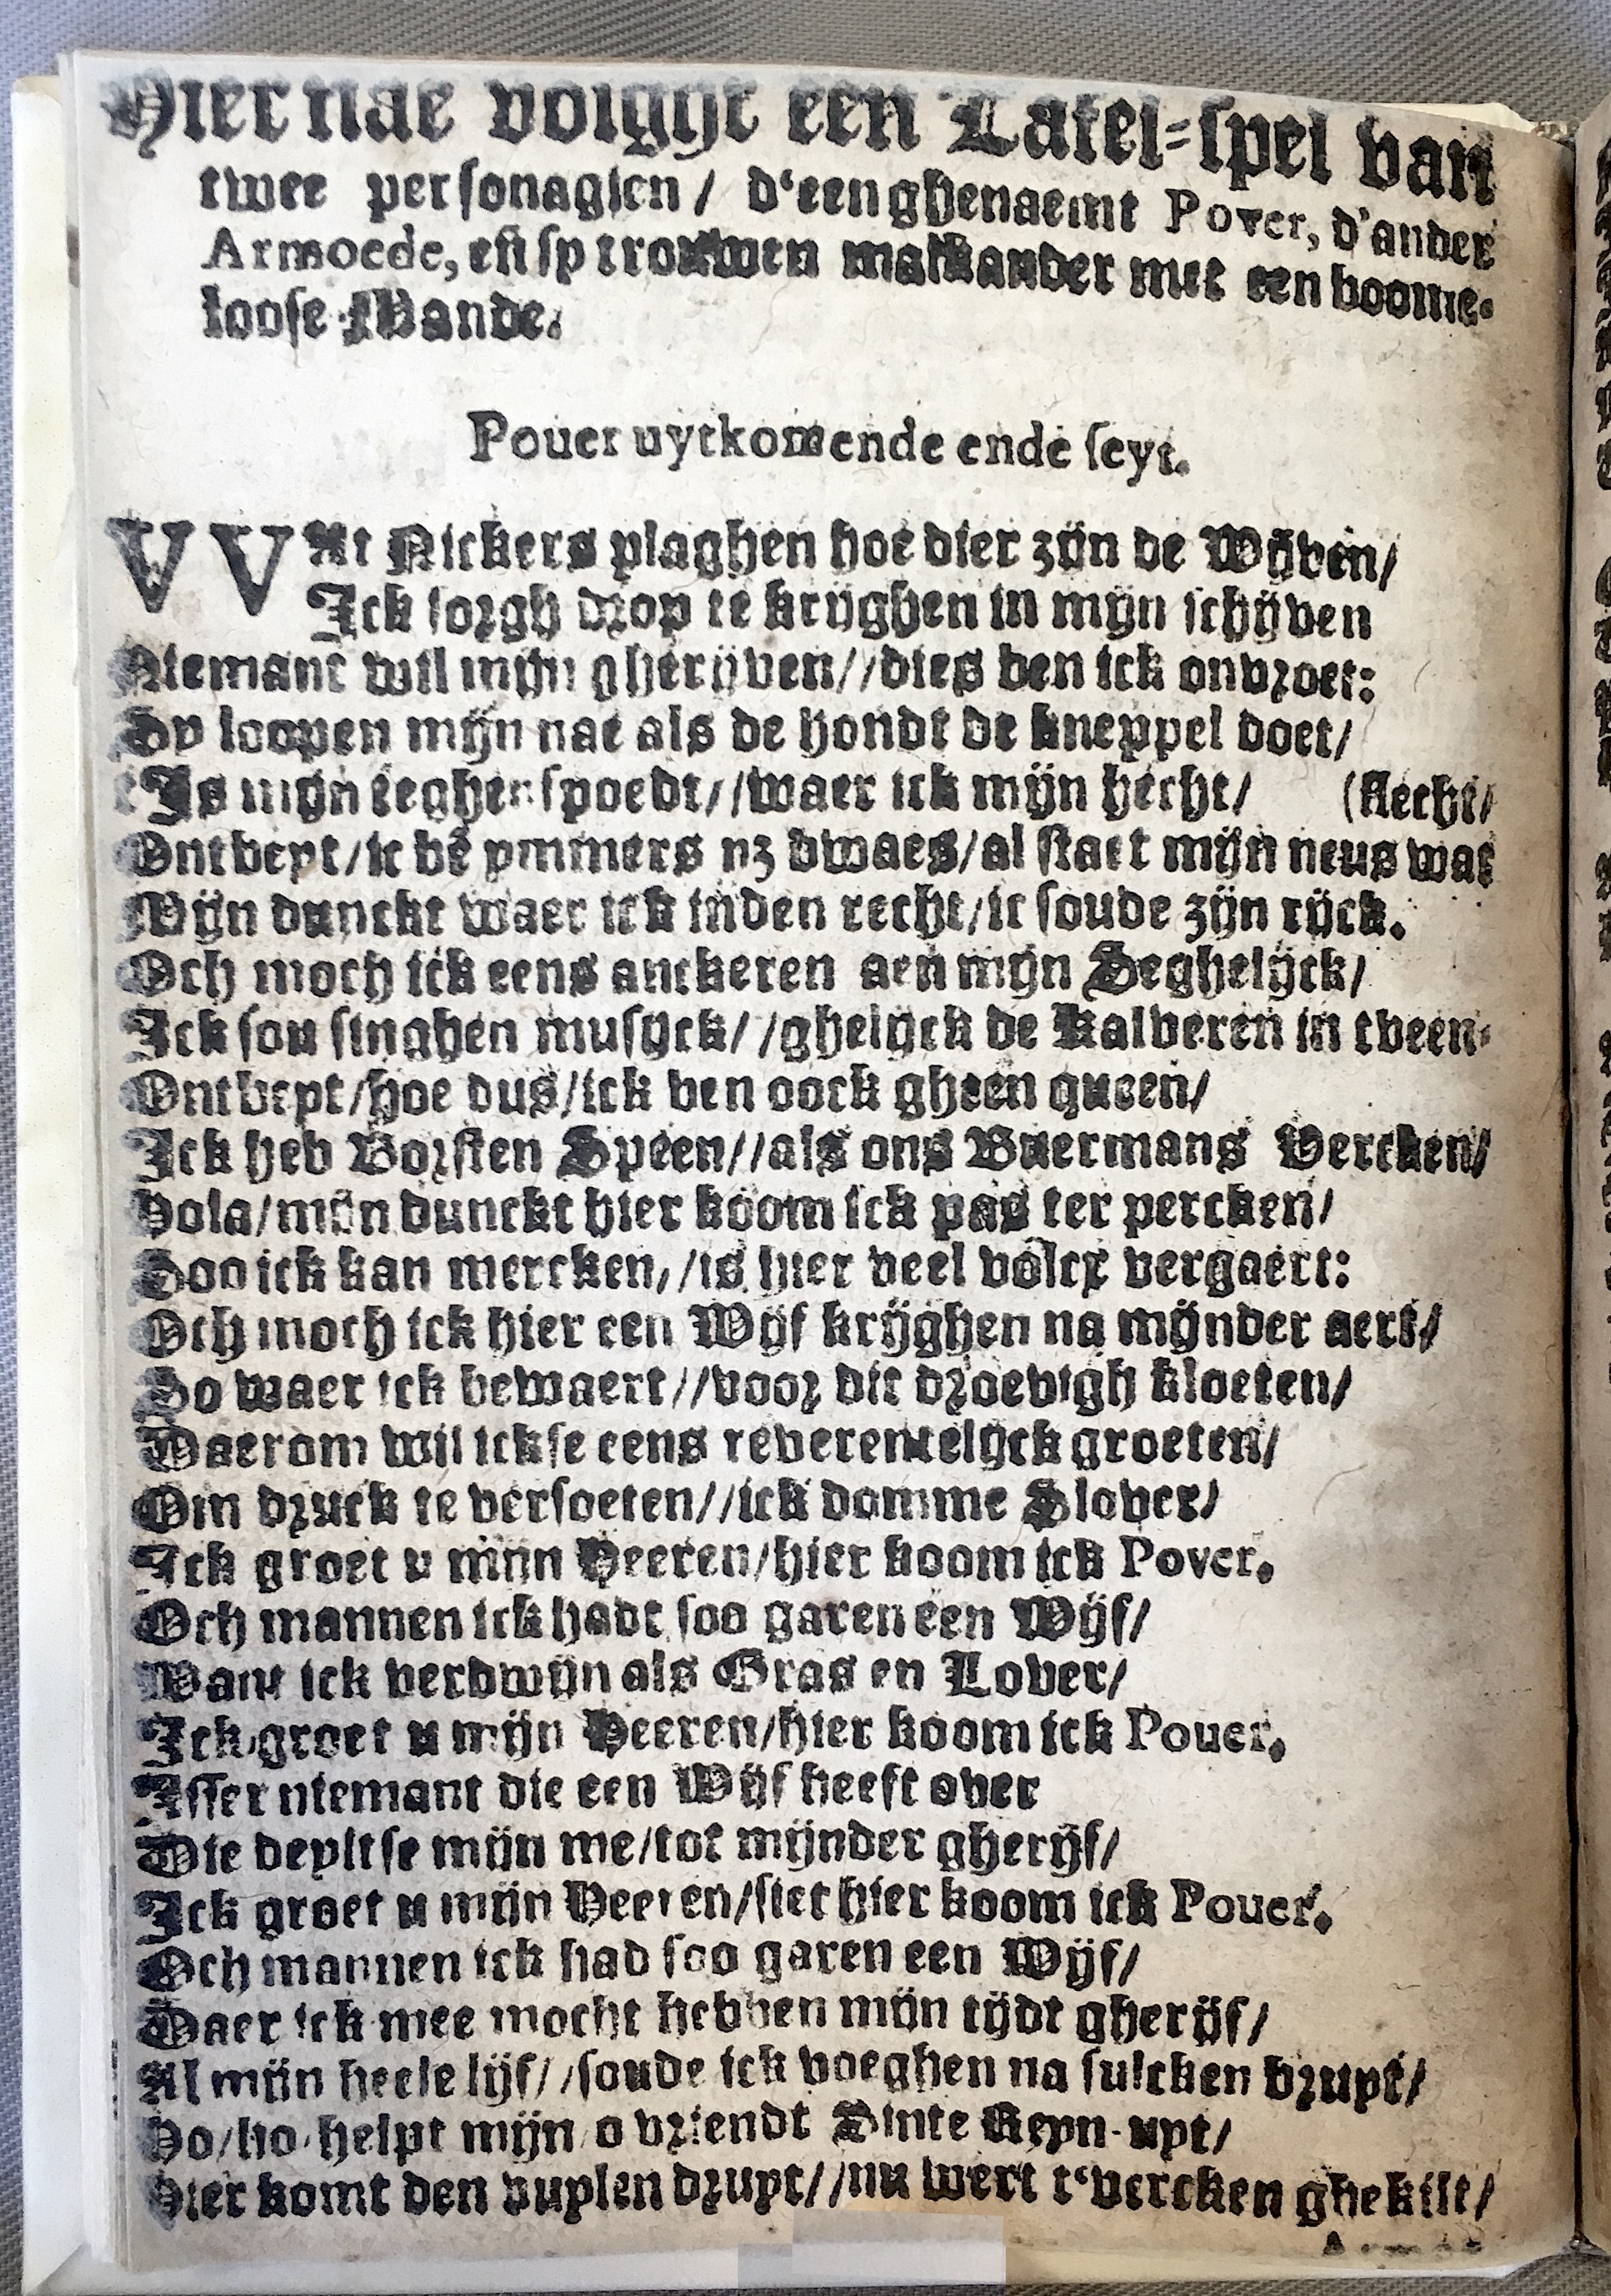 Hier nae volght een Tafel-spel van
twee personagien / d'een ghenaemt Pover, d'ander
Armoede, eñ sy trouwen malkander met een boome-
loose Mande.
Pouer uytkomende ende seyt.
VVAt Nickers plaghen hoe dier zijn de Wijven/
Ick sorgh drop te krijghen in mijn schijven
Niemant wil mijn gherijven//dies ben ick onvroet:
Sy loopen mijn nae als de hondt de kneppel doet/
t'Is mijn teghenspoedt//waer ick mijn hecht/ (slecht/
Ontbeyt/ic bẽ ymmers nz dwaes/al staet mijn neus wat
Mijn dunckt waer ick inden recht/ic soude zijn rijck.
Och moch ick eens anckeren aen mijn Seghelijck/
Ick sou singhen musijck//ghelijck de Kalveren in tveen.
Ontbeyt/hoe dus/ick ben oock gheen queen/
Ick heb Borsten Speen//als ons Buermans Vercken/
Hola/mijn dunckt hier koom ick pas ter percken/
Soo ick kan mercken//is hier veel volcx vergaert:
Och moch ick hier een Wijf krijghen na mijnder aert/
So waer ick bewaert//voor dit droevigh kloeten/
Daerom wil ickse eens reverentelijck groeten/
Om druck te versoeten//ick domme Slover/
Ick groet u mijn Heeren/hier koom ick Pover.
Och mannen ick hadt soo garen een Wijf/
Want ick verdwijn als Gras en Lover/
Ick groet u mijn Heeren/hier koom ick Pouer.
Isser niemant die een Wijf heeft over
Die deyltse mijn me/tot mijnder gherijf/
Ick groet u mijn Heeren/siet hier koom ick Pouer.
Och mannen ick had soo garen een Wijf/
Daer ick mee mocht hebben mijn tijdt gherijf/
Al mijn heele lijf//soude ick voeghen na sulcken bruyt/
Ho/ho helpt mijn o vriendt Sinte Reyn-uyt/
Hier komt den vuylen druyt//nu wert t'vercken ghekist/